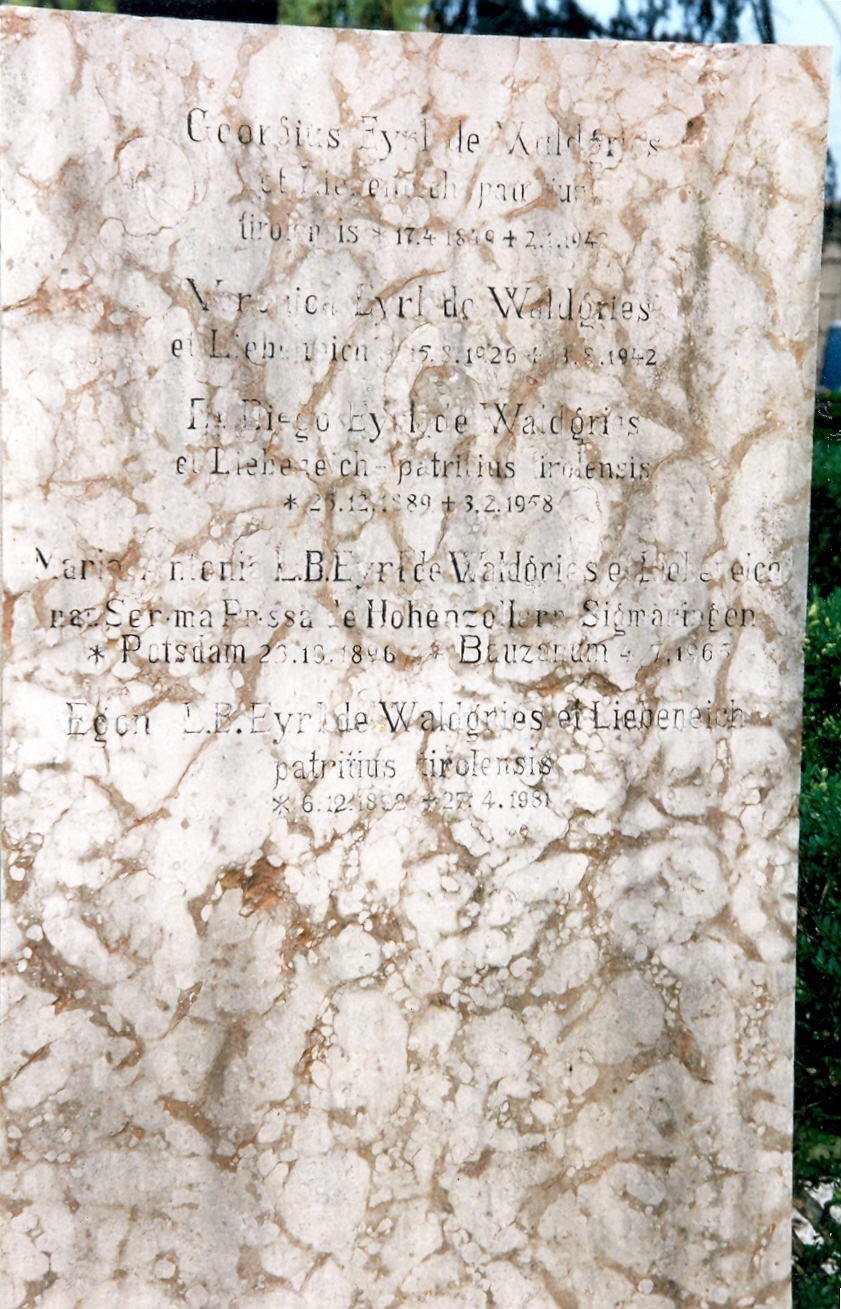 Georgius Eyrl de Waldgries
et Liebeneich patritius
tirolensis * 17.4.18 + 2.
Veronica Eyrl de Waldgries
et Liebeneich * 15.8.1926 + 8.1942
Diego Eyrl de Waldgries
et Liebeneich - patritius tirolensis
* 12.1889 + 3.2.1958
Maria Antonia L.B. Eyrl de Waldgries et Liebeneich
Hohenzollern Sigmaringen
* Potsdam 1896 Bauzanum 7.
Egon L.B. Eyrl de Waldgries et Liebeneich
patritius tirolensis
* 6.12.1892 + 27.4.1981